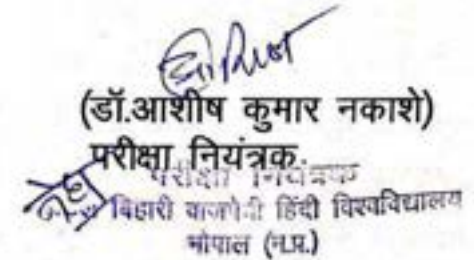 (डॉ.आशीष कुमार नकाशे)
परीक्षा नियंत्रक
परीक्षा नियंत्रक
बिहारी वाजपेयी हिंदी विश्वविद्यालय
भोपाल (म.प्र.)